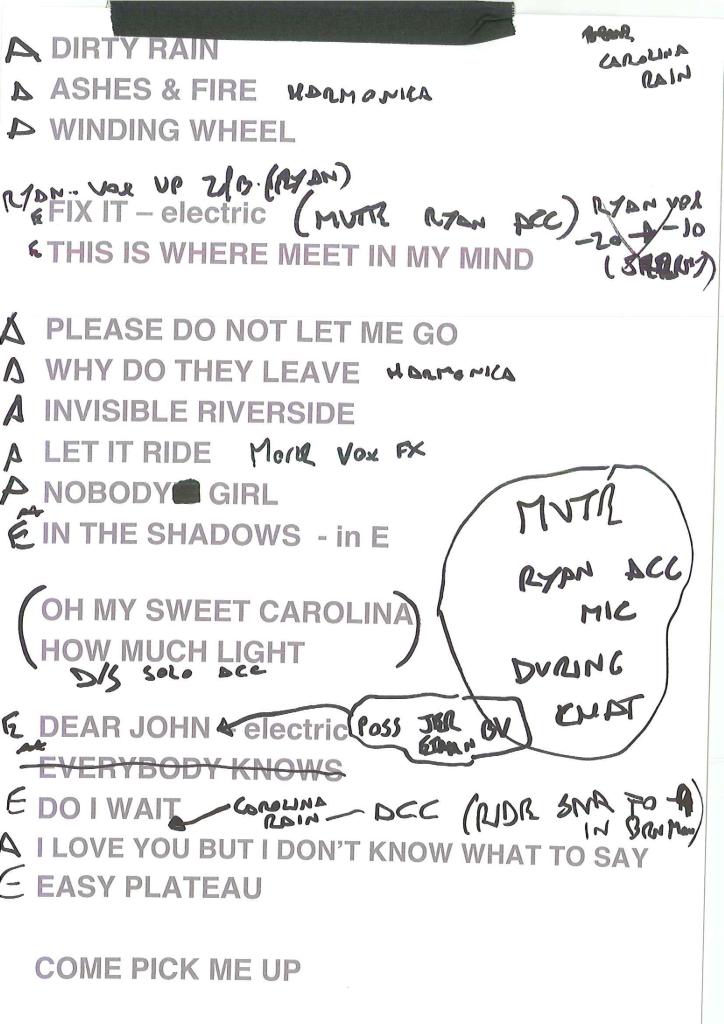 A DIRTY RAIN
CAROLINA
RAIN
A ASHES & FIRE HARMONICA
A WINDING WHEEL
RYAN.. VOX UP (RYAN)
E FIX IT – electric (MUTE RYAN ACC) RYAN VOX
-20 -10
E THIS IS WHERE MEET IN MY MIND
A PLEASE DO NOT LET ME GO
A WHY DO THEY LEAVE HARMONICA
A INVISIBLE RIVERSIDE
A LET IT RIDE MORE VOX FX
A NOBODY GIRL
E IN THE SHADOWS - in E
MUTE
RYAN ACC
MIC
DURING
CHAT
(OH MY SWEET CAROLINA
HOW MUCH LIGHT)
D/S SOLO ACC
E DEAR JOHN - electric POSS BV
EVERYBODY KNOWS
E DO I WAIT CAROLINA RAIN – ACC (RIDE
A I LOVE YOU BUT I DON'T KNOW WHAT TO SAY
E EASY PLATEAU
COME PICK ME UP